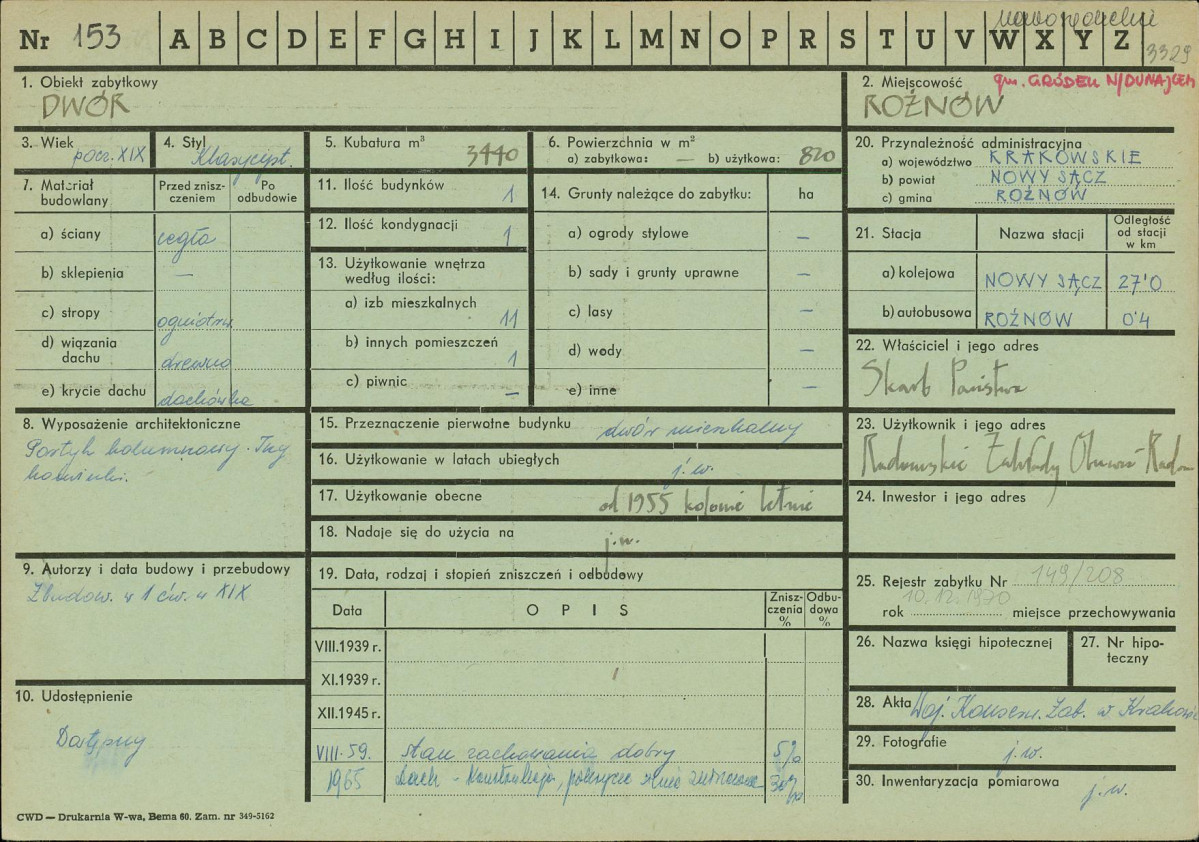 nowosądeckie
Nr 153 A B C D E F G H I J K L M N O P R S T U V W X Y Z
3329
1. Obiekt zabytkowy
DWÓR
2. Miejscowość
gm. GRÓDEK N/DUNAJCEM
ROŻNÓW
3. Wiek
pocz. XIX
4. Styl
Klasycyst.
5. Kubatura m³
3440
6. Powierzchnia w m²
a) zabytkowa: — b) użytkowa: 820
20. Przynależność administracyjna
a) województwo KRAKOWSKIE
b) powiat NOWY SĄCZ
c) gmina ROŻNÓW
7. Materiał budowlany
Przed zniszczeniem
Po odbudowie
a) ściany cegła
b) sklepienia —
c) stropy ogniotrw.
d) wiązania dachu drewno
e) krycie dachu dachówka
11. Ilość budynków 1
12. Ilość kondygnacji 1
13. Użytkowanie wnętrza według ilości:
a) izb mieszkalnych 11
b) innych pomieszczeń 1
c) piwnic —
14. Grunty należące do zabytku: ha
a) ogrody stylowe —
b) sady i grunty uprawne —
c) lasy —
d) wody —
e) inne —
21. Stacja
Nazwa stacji
Odległość od stacji w km
a) kolejowa NOWY SĄCZ 27'0
b) autobusowa ROŻNÓW 0'4
22. Właściciel i jego adres
Skarb Państwa
8. Wyposażenie architektoniczne
Portyk kolumnowy.
15. Przeznaczenie pierwotne budynku dwór mieszkalny
16. Użytkowanie w latach ubiegłych j.w.
17. Użytkowanie obecne od 1955 kolonie letnie
18. Nadaje się do użycia na j.w.
23. Użytkownik i jego adres
Radomskie Zakłady Obuwia - Radom
24. Inwestor i jego adres
9. Autorzy i data budowy i przebudowy
Zbudow. w 1 ćw. w XIX
19. Data, rodzaj i stopień zniszczeń i odbudowy
Data
OPIS
Zniszczenia %
Odbudowa %
VIII.1939 r.
XI.1939 r.
XII.1945 r.
VIII-59. Stan zachowania dobry 5%
1965 Dach - pokrycie 30%
25. Rejestr zabytku Nr 149/208
10.12.1970
rok miejsce przechowywania
26. Nazwa księgi hipotecznej
27. Nr hipoteczny
10. Udostępnienie
Dostępny
28. Akta Woj. Konserw. Zab. w Krakowie
29. Fotografie j.w.
30. Inwentaryzacja pomiarowa j.w.
CWD — Drukarnia W-wa, Bema 60. Zam. nr 349-5162